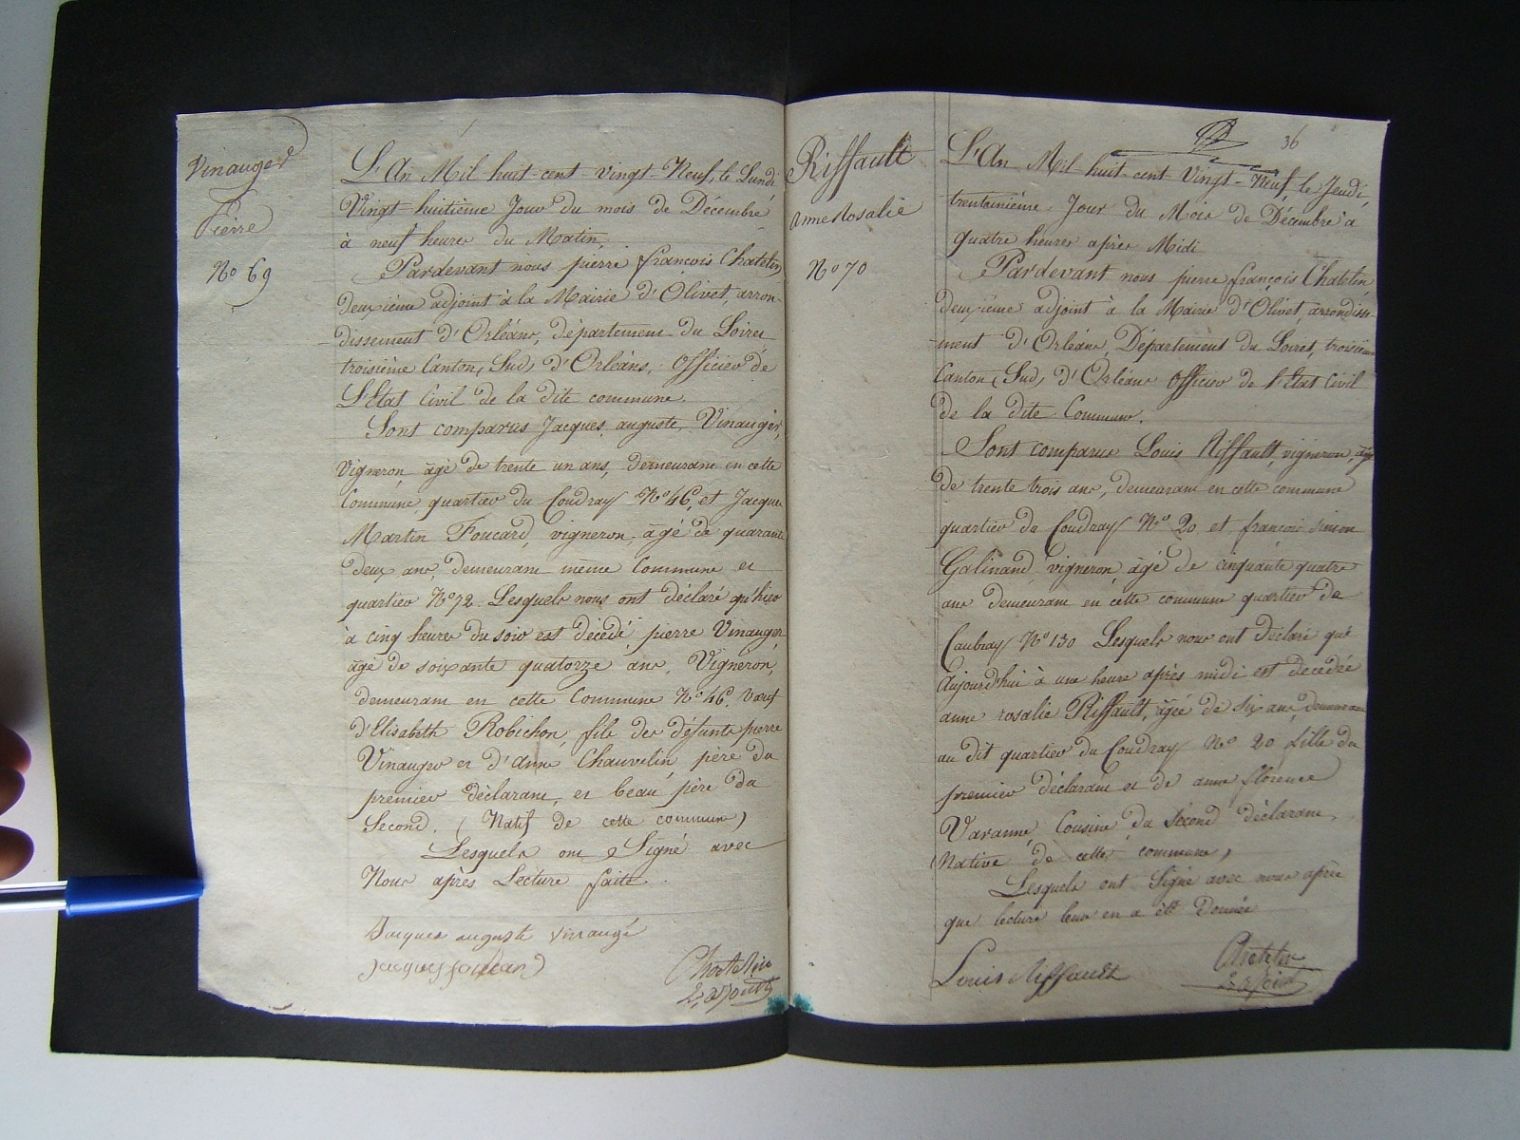 Vinauger
Pierre
No 69
L'An Mil huit-cent vingt-Neuf, le Lundi
Vingt-huitième Jour du mois de Décembre
à neuf heures du Matin,
Pardevant nous pierre françois Chatelin
deuxième adjoint à la Mairie d'Olivet, arron-
-dissement d'Orléans, département du Loiret
troisième Canton, Sud, d'Orléans, Officier de
L'Etat Civil de la dite commune.
Sont comparus Jacques, auguste, Vinauger,
Vigneron, âgé de trente un ans, demeurant en cette
Commune, quartier du Coudray No 46, et Jacques
Martin Foucard, vigneron, âgé de quarante
deux ans, demeurant même Commune et
quartier No 72. Lesquels nous ont déclaré qu'hier
à cinq heures du soir est décédé pierre Vinauger
âgé de soixante quatorze ans, Vigneron,
demeurant en cette Commune No 46, Vœuf
d'Elisabeth Robichon, fils des défunts pierre
Vinauger et d'Anne Chauvelin père du
premier déclarant, et beau père du
Second. (Natif de cette commune)
Lesquels ont Signé avec
Nous après Lecture faite.
Jacques auguste vinaugé
jacques foucard
Chatelin
2, adjoint
36
Riffault
Anne Rosalie
No 70
L'An Mil huit-cent Vingt-Neuf, le Jeudi,
trentunième Jour du Mois de Décembre à
quatre heures après Midi
Pardevant nous pierre françois Chatelin
deuxième adjoint à la Mairie d'Olivet, arrondisse-
-ment d'Orléans, Département du Loiret, troisième
Canton, Sud, d'Orléans Officier de l'Etat Civil
de la dite Commune.
Sont comparus Louis Riffault, vigneron, âgé
de trente trois ans, demeurant en cette commune
quartier du Coudray No 20 et françois simon
Galinand, vigneron, âgé de cinquante quatre
ans demeurant en cette commune quartier de
Caubray No 130 Lesquels nous ont déclaré que
Aujourd'hui à une heure après midi est decédée
anne rosalie Riffault, âgée de six ans, demeurant
au dit quartier du Coudray No 20 fille du
premier déclarant et de anne florence
Varanne, Cousine du second déclarant,
(Native de cette commune)
Lesquels ont Signé avec nous après
que lecture leur en a été Donnée
Louis Riffault
Chatelin
2 adjoint